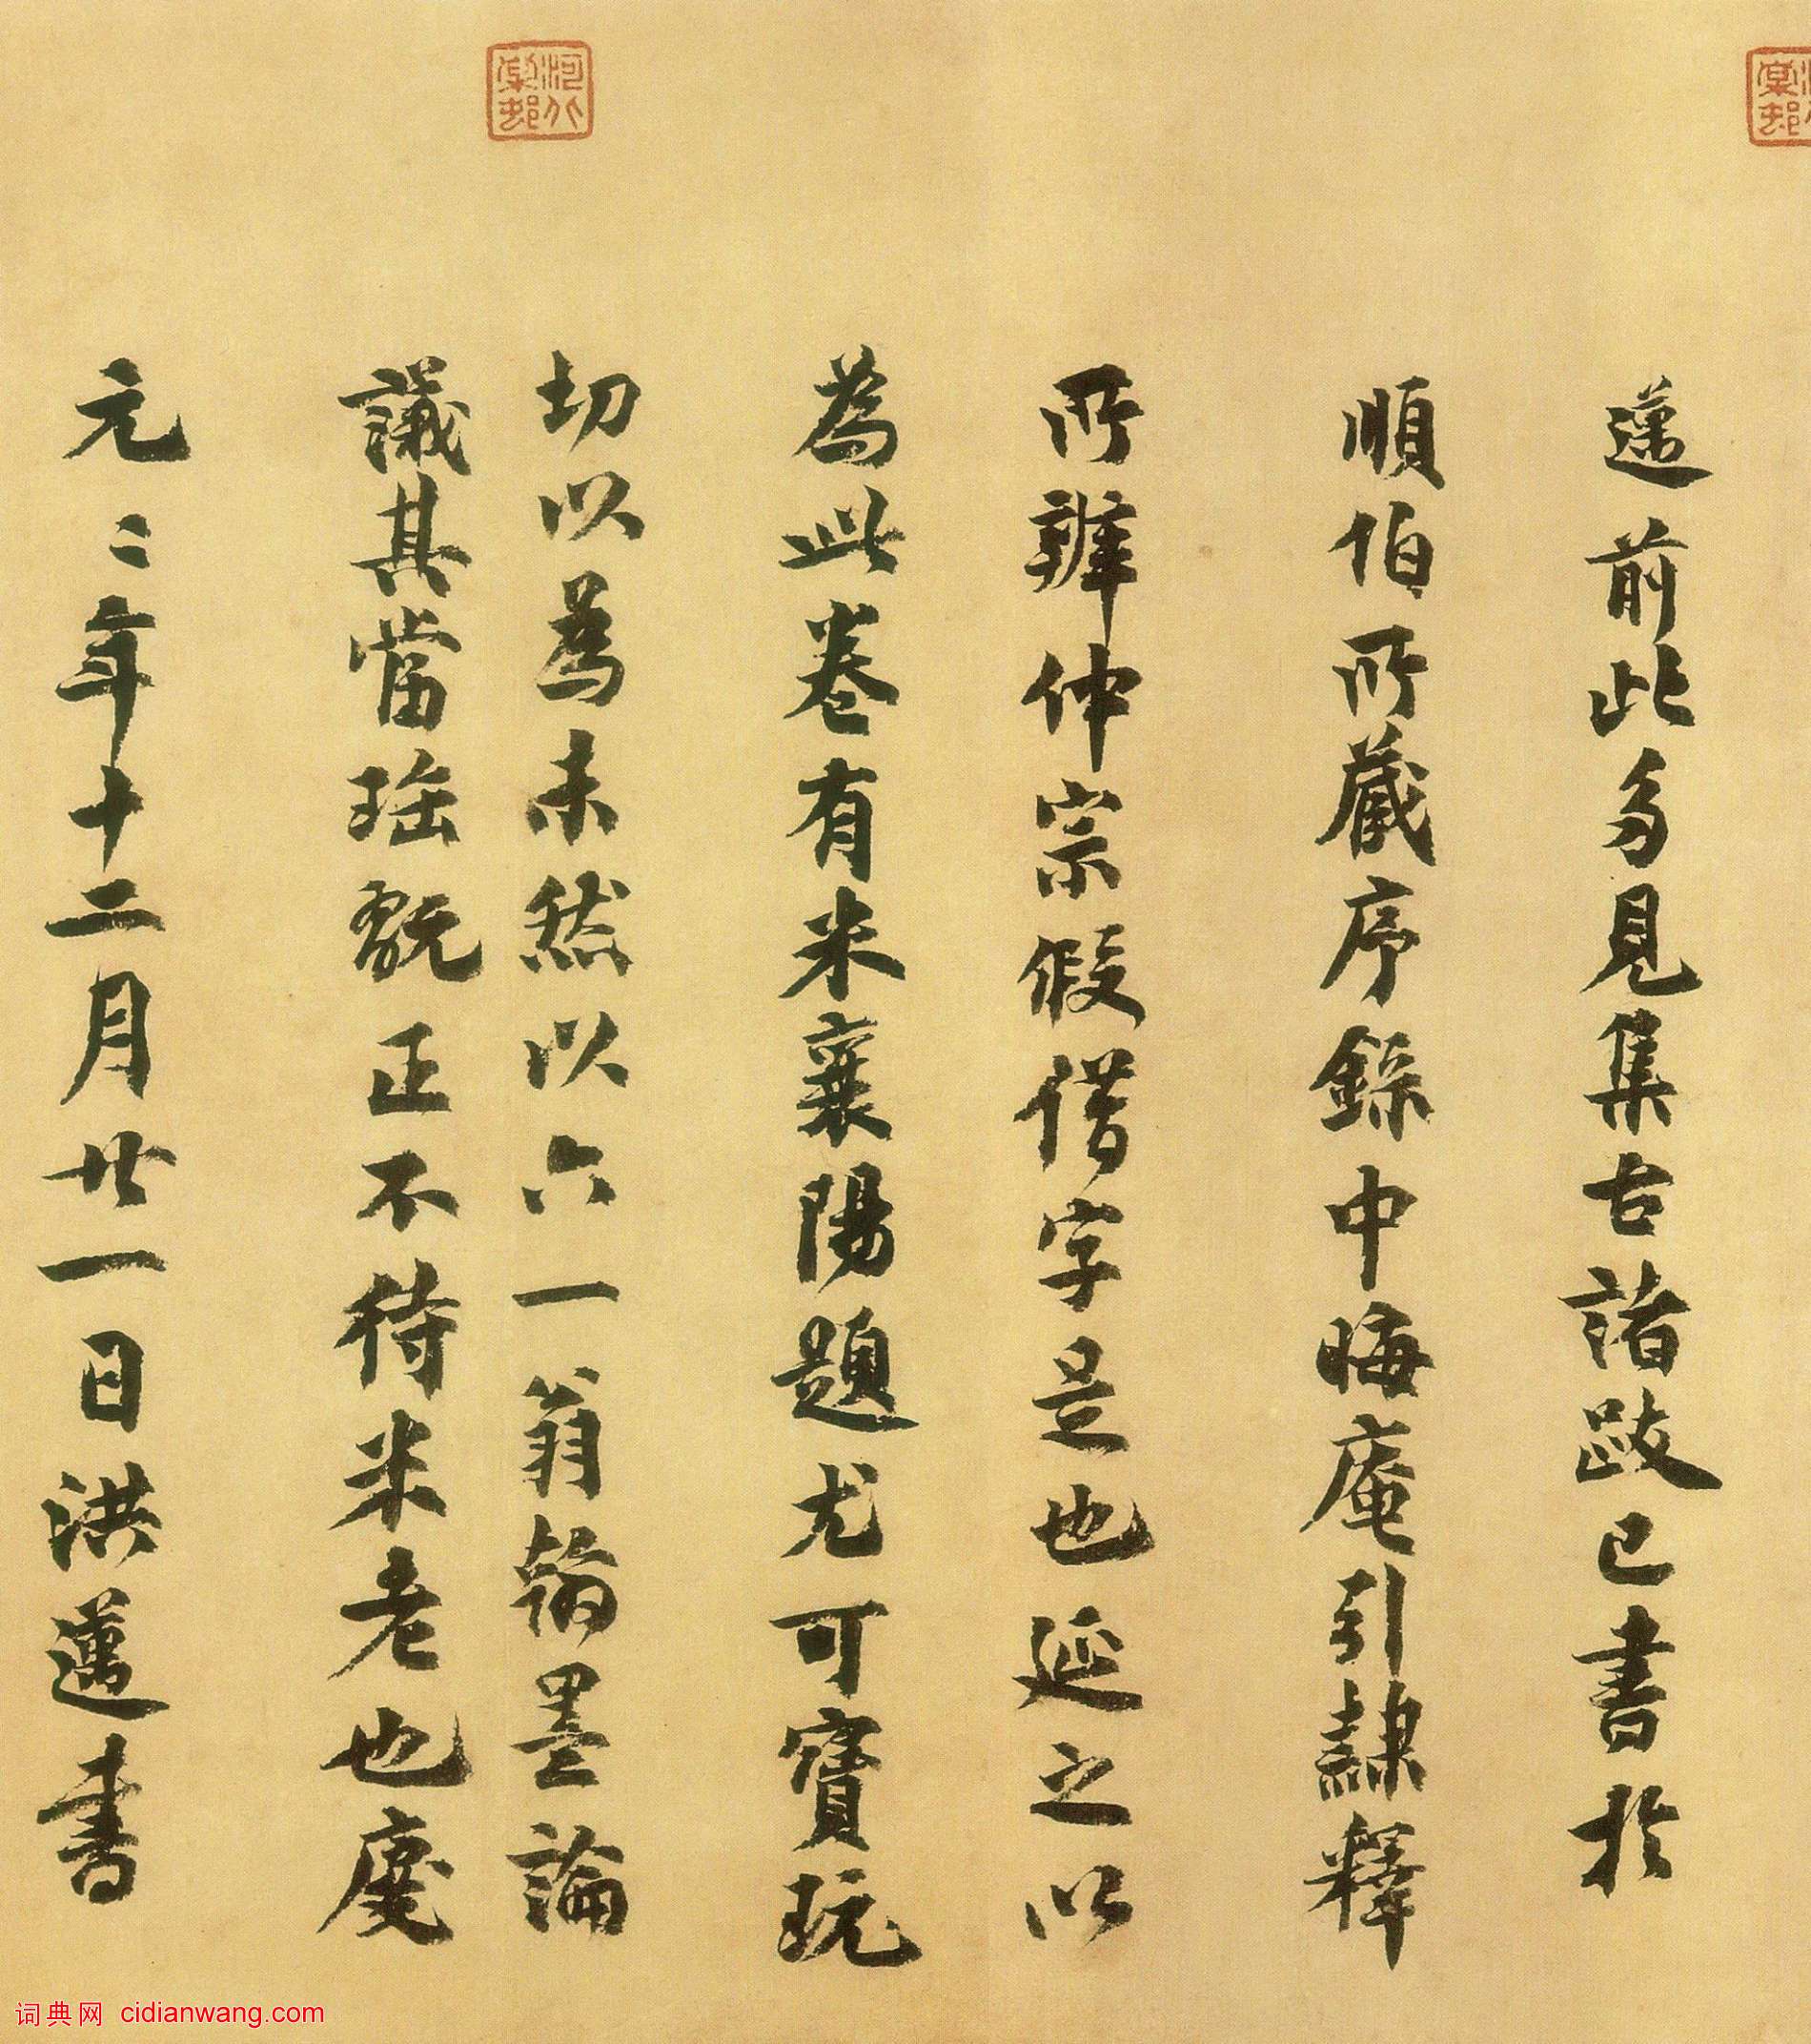 邁前此多見集古諸跋已書於
順伯所藏序錄中晦庵引隸釋
所辨仲宗假借字是也延之以
為此卷有米襄陽題尤可寶玩
切以為未然以六一翁翰墨論
議其當瑤翫正不待米老也慶
元二年十二月廿一日洪邁書
河北
棠邨
词典网 cidianwang.com